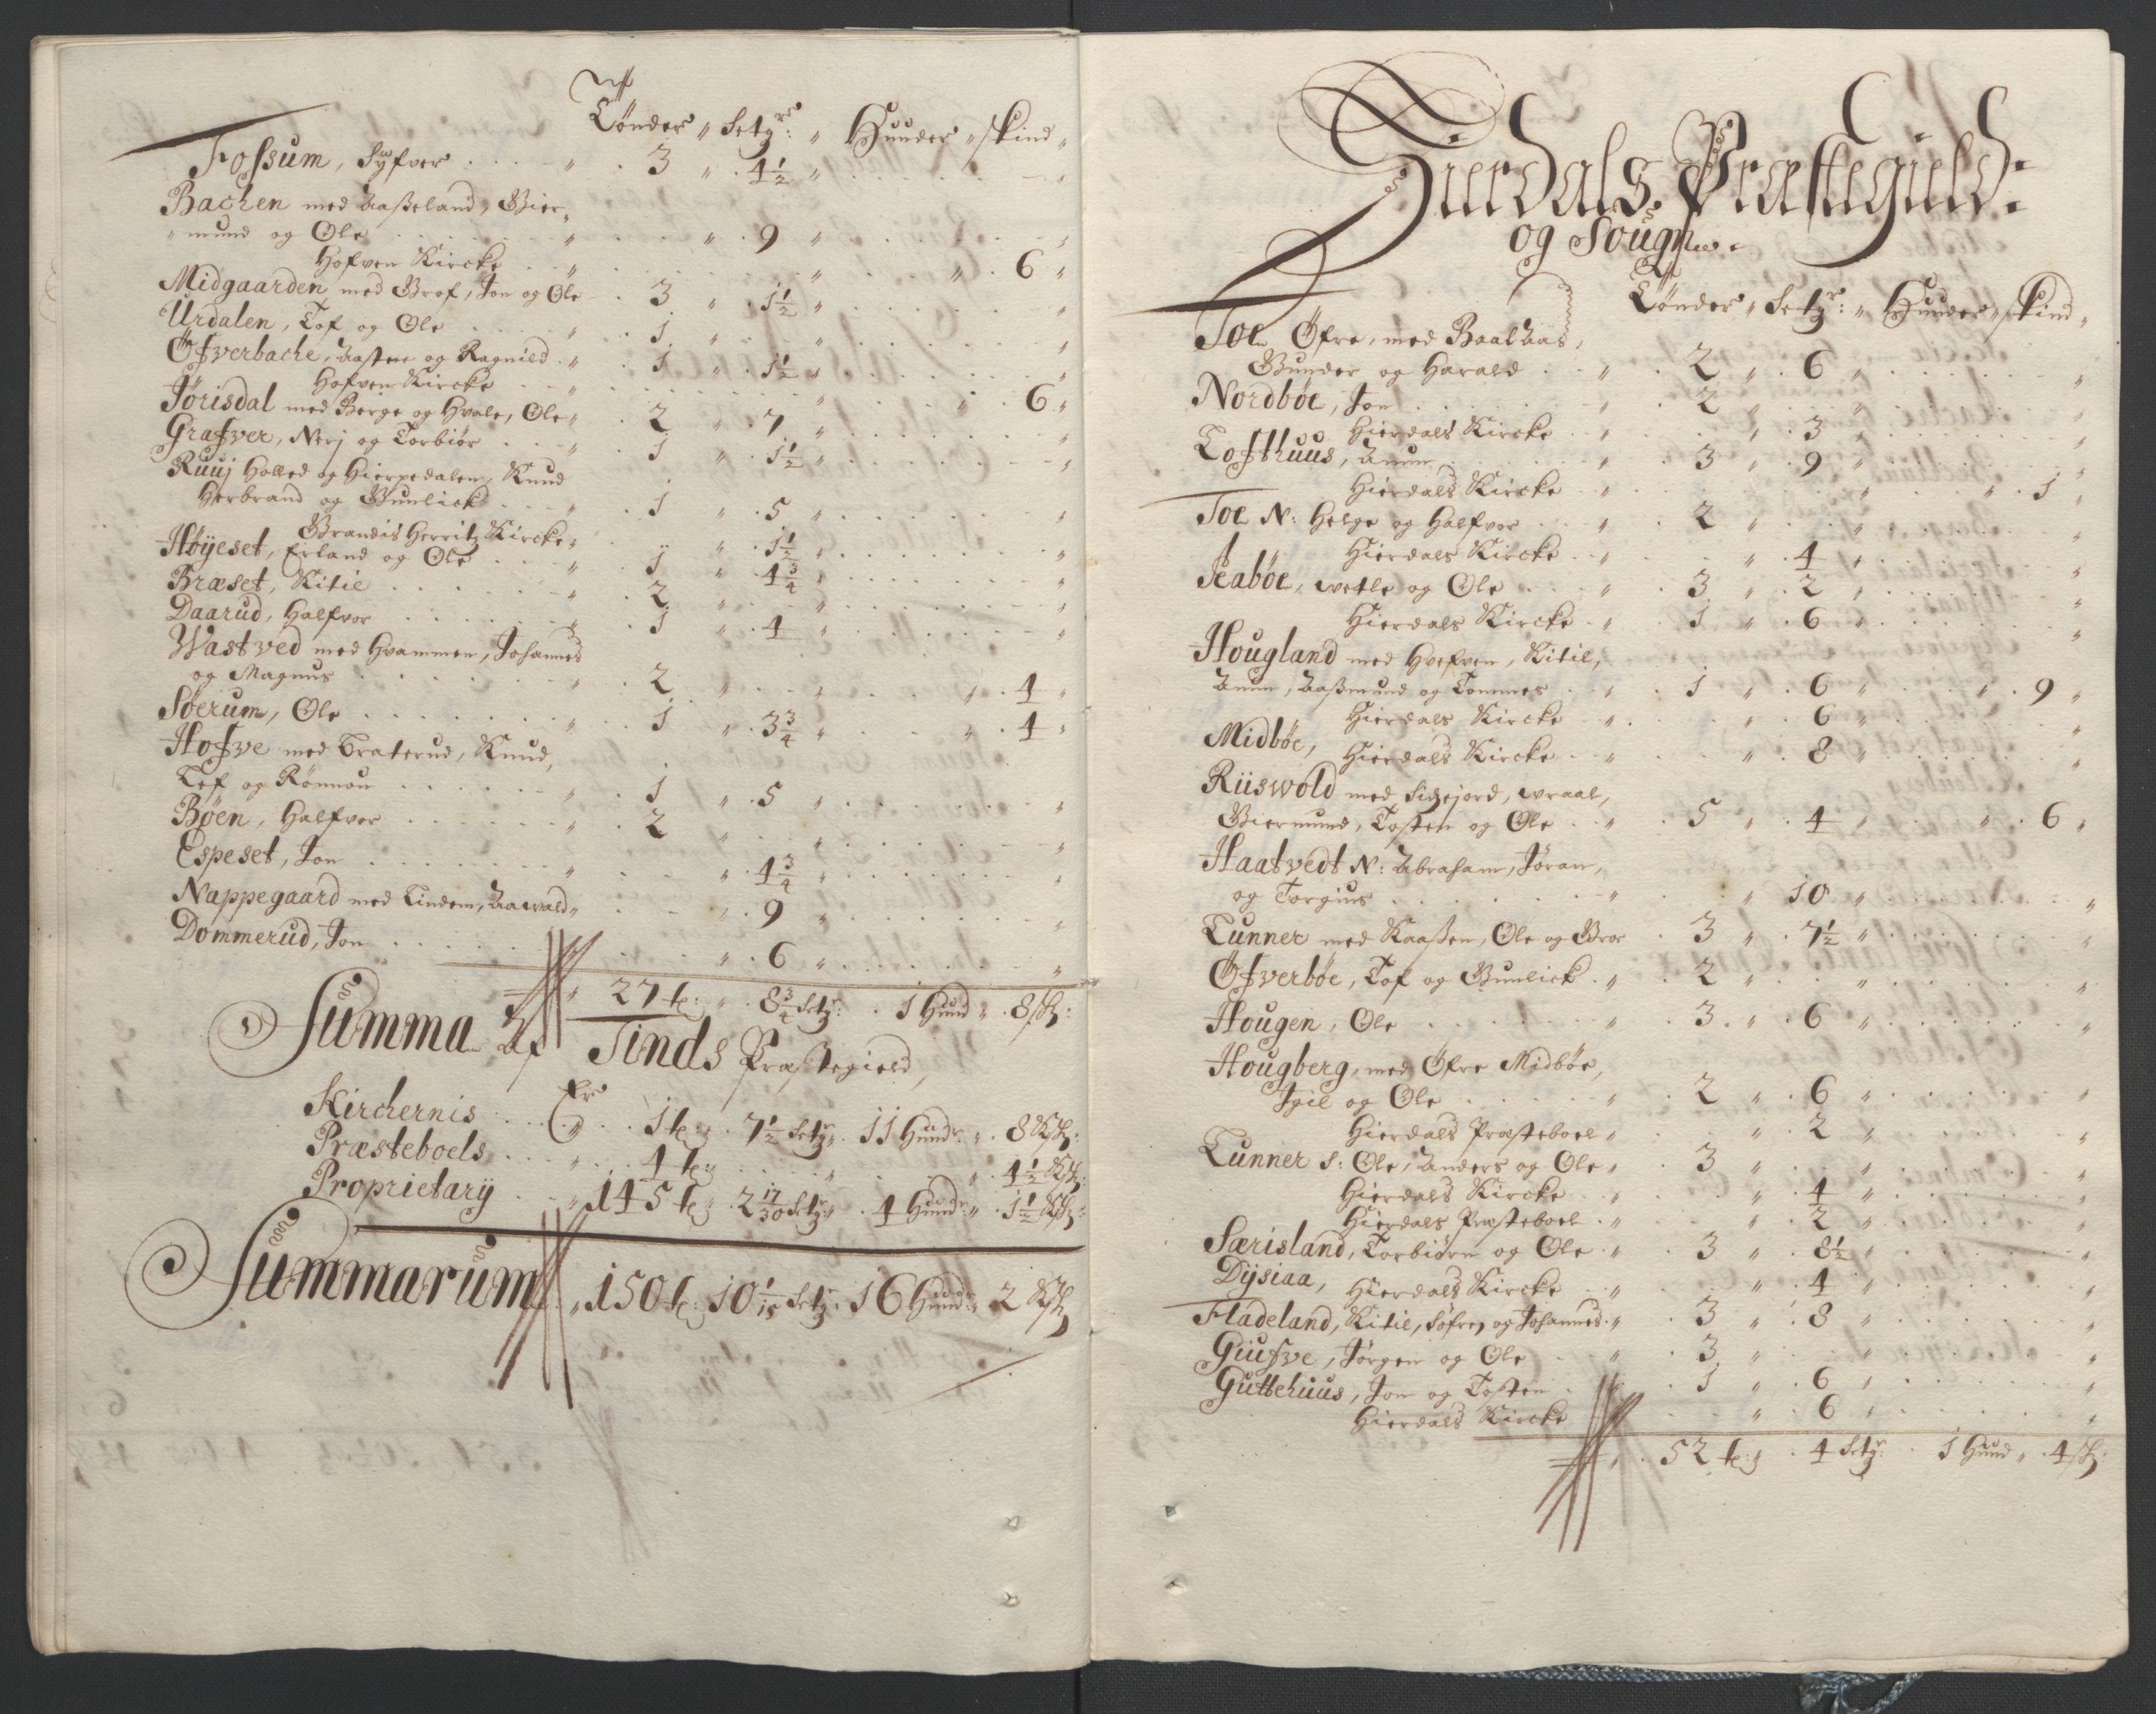 Tønder " Setgr: " Huuder " skind "
Fossum, Syfver . . . " . 3 " . 4½ " . . . "
Bachen med Aasseland, Gier-
mund og Ole . . . " . . " . 9 " . . . "
Hofven Kircke . . " . . . " . . " . 6 "
Midgaarden med Grof, Jon og Ole . 3 " . 1½ " . . . "
Urdalen, Tof og Ole . . . " . 1 . " . . " . . . "
Öfverbache, Aasten og Ragnild . " . 1 " . 1½ " . . . "
Hofven Kircke . . " . . . " . . " . 6 "
Jørisdal med Berge og Hvale, Ole " . 2 " . 7 " . . . "
Grafver, Nerj og Torbiør . . " . 1 " . 1½ " . . . "
Ruuj Holled og Hierpedalen, Knud
Herbrand og Gunlick . . . " . 1 " . 5 " . . . "
Brandis Herritz Kircke " . . " . 1½ " . . . "
Høyeset, Erland og Ole . . . " . 1 " . 4¾ " . . . "
Bræset, Kitil . . . " . 2 " . . " . . . "
Daarud, Halfvor . . . " . 1 " . 4 " . . . "
Wastved med Hvammen, Johannes
og Magnus . . . " . 2 " . . " . . " . 4 "
Søerum, Ole . . . " . 1 " . 3¾ " . . " . 4 "
Hofve med Traterud, Knud,
Tef og Rønnou . . . " . 1 " . 5 " . . . "
Bøen, Halfvor . . . " . 2 " . . " . . . "
Espeset, Jon . . . " . . " . 4¾ " . . . "
Nappegaard med Tindem, Aawald " . . " . 9 " . . . "
Dommerud, Jon . . . " . . " . 6 " . . . "
" 27 t: " . 8¾ Setgr: . 1 Hund " . 8 sk:
Summa Af Tinds Præstegield,
Er
Kirchernis . . . " . . 1 t: " . 7½ Setgr . 11 Hundr: " . 8 Sk:
Præsteboels . . . " . . . 4 t: . . . " . . " . 4½ Sk:
Proprietarÿ . . " 145 t: " 2 17/30 Setgr " . 4 Hundr: " . 1½ Sk:
Summarum " 150 t: 10 1/15 Setgr . 16 Hundr: " 2 Sk
Hierdals Præstegield:
og Sougn.
Tønder " Setgr: " Huuder " skind "
Toe Öfre, med Baakaas,
Gunder og Harald . . " . 2 " . 6 " . . . "
Nordbøe, Jon . . . " . 2 " . . " . . . "
Hierdals Kircke . . " . . " . 3 " . . . "
Lofthuus, Anun . . . " . 3 " . 9 " . . . "
Hierdals Kircke . . " . . . " . . " . 1 "
Toe N: Helge og Halfvor . . " . 2 " . . " . . . "
Hierdals Kircke . . " . . " . 4 " . . . "
Jeabøe, Wetle og Ole . . . " . 3 " . 2 " . . . "
Hierdals Kircke . " . 1 " . 6 " . . . "
Hougland med Hvefven, Kitil,
Anun, Aassmund og Tommes . . " . 1 " . 6 " . . " . 9 "
Hierdals Kircke . . " . . " . 6 " . . . "
Midbøe, Hierdals Kircke . . " . . " . 8 " . . . "
Riiswold med Sidsejord, Wraal,
Giermund, Tosten og Ole . . " . 5 " . 4 " . . " . 6 "
Haatvedt N: Abraham, Jøran,
og Torgius . . . " . . " 10 " . . . "
Tunner med Kaassen, Ole og Bror . 3 " . 7½ " . . . "
Öfverbøe, Tof og Gunlick . " . 2 " . . " . . . "
Hougen, Ole . . . " . 3 " . 6 " . . . "
Hougberg, med Öfre Midbøe,
Igil og Ole . . . " . 2 " . 6 " . . . "
Hierdals Præsteboel " . . " . 2 " . . . "
Tunner S: Ole, Anders og Ole " . 3 " . . " . . . "
Hierdals Kircke . . " . . " . 4 " . . . "
Hierdals Præsteboel . " . . " . 2 " . . . "
Særisland, Torbiørn og Ole . " . 3 " . 8½ " . . . "
Dysiaa, Hierdals Kircke . . " . . " . 4 " . . . "
Fladeland, Kitil, Søfren og Johannes . " . 3 " . 8 " . . . "
Giufve, Jørgen og Ole . . " . 3 " . . " . . . "
Guttehuus, Jon og Tosten . . . 1 " . 6 " . . . "
Hierdals Kircke . . . " . 6 " . . . "
" . 52 t: . 4 Setgr: . 1 Hund " . 4 sk: